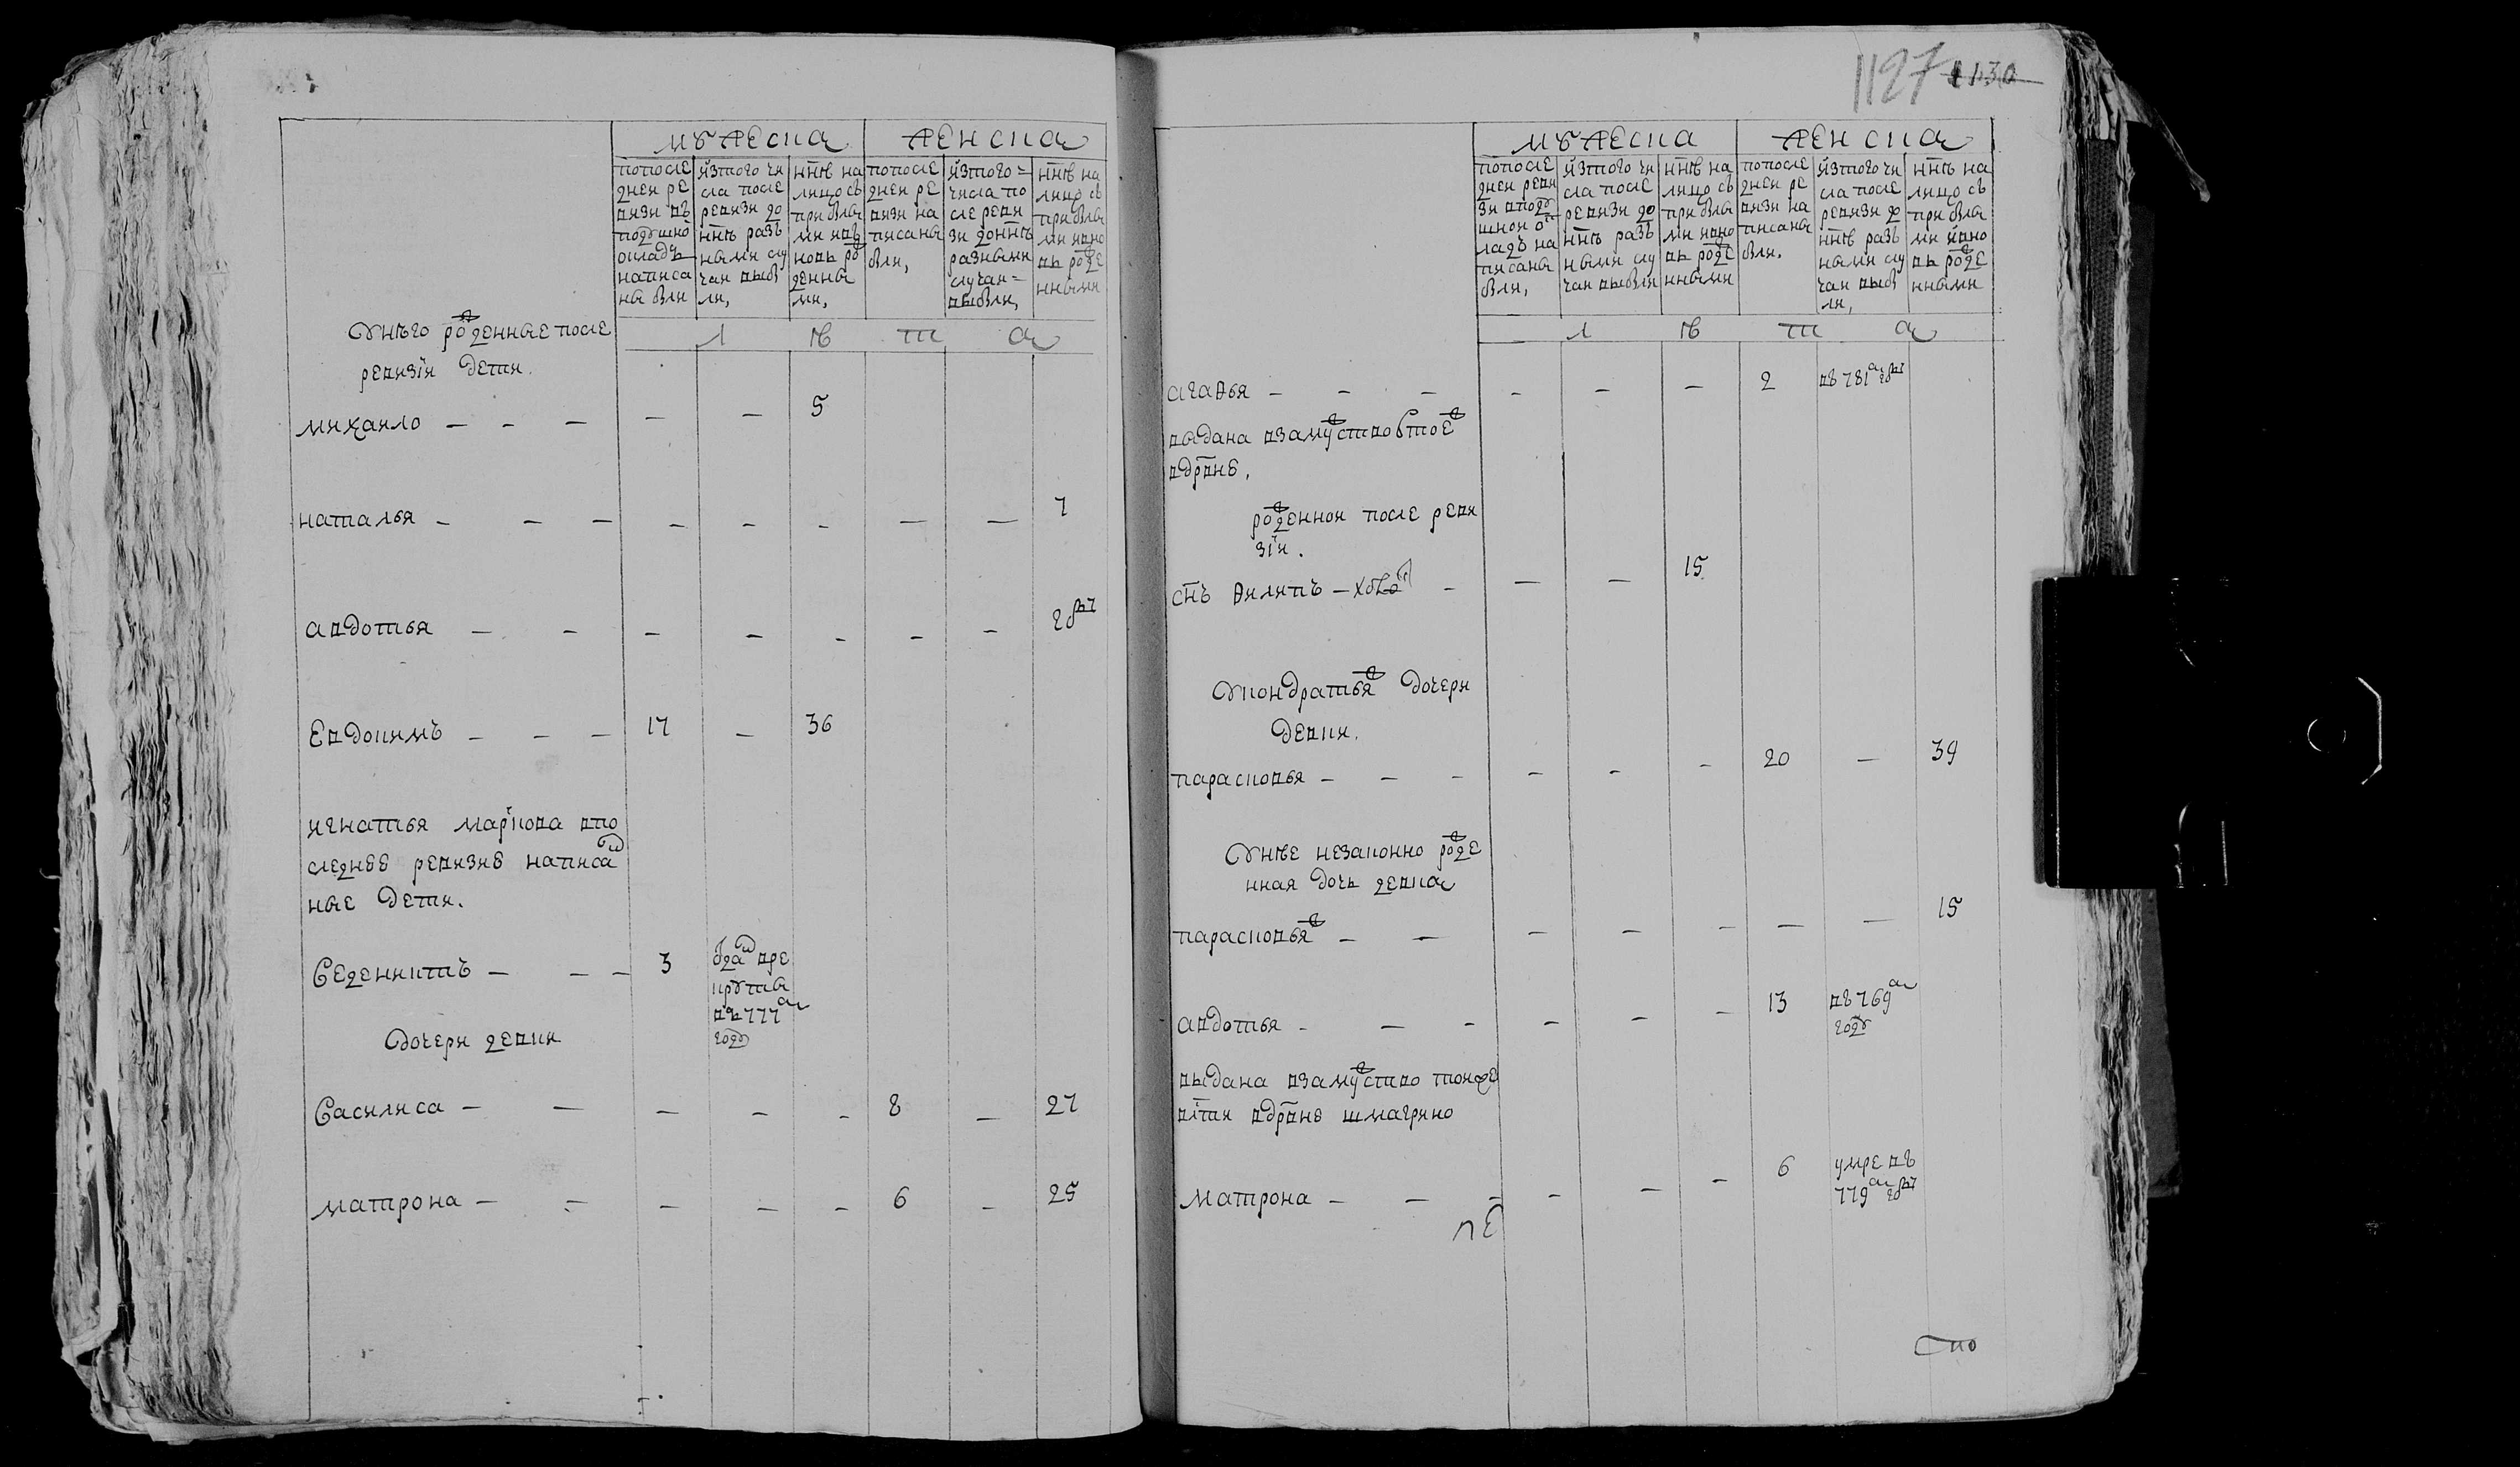 мужеска
женска
по после
дней ре
визи въ
подушно
окладъ
написа
ны были
изтого чи
сла после
ревизи до
ннѣ разъ
ными слу
чаи выбы
ли,
ннѣ на
лицо съ
прибылы
ми и въ
новь ро
жденны
ми,
по после
дней ре
визи на
писаны
были,
изтого
числа по
сле реви
зи до ннѣ
разными
случаи
выбыли,
ннѣ на
лицо съ
прибылы
ми и вно
вь рожде
нными
л ѣ т а
У него рожденные после
ревизiи дети.
михаило — — — — — 5
наталья — — — — — — — — 7
авдотья — — — — — — — годъ
Евдокимъ — — — 17 — 36
игнатья маркова в по
следнее ревизие написа
ные дети.
Седениктъ — — — 3 отдан в ре
круты
въ 777
году
дочери девки
Василиса — — — — — 8 — 27
матрона — — — — — 6 — 25
1127 1130
мужеска
женска
по после
дней реви
зи в поду
шной о
ладъ на
писаны
были,
изтого чи
сла после
ревизи до
ннѣ разъ
ными слу
чаи выбыли
ннѣ на
лицо съ
прибылы
ми и вно
вь рожде
нными
по после
дней ре
визи на
писаны
были.
изтого чи
сла после
ревизи до
ннѣ разъ
ными слу
чаи выбы
ли,
ннѣ на
лицо съ
прибылы
ми и вно
вь рожде
нными
л ѣ т а
агафья — — — — — — 2 въ 781 году
выдана взамужство в тоеж
вдрвне,
рожденной после реви
зiи.
снъ филипъ — — — — 15
У кондратьяж дочери
девки.
парасковья — — — — — — 20 — 39
У нѣе незаконно рожде
нная дочь девка
парасковьяж — — — — — — — 15
авдотья — — — — — — 13 въ 769
году
выдана взамужство тойже
вдрвне шмагрино
матрона — — — — — — 6 умре въ
779 году